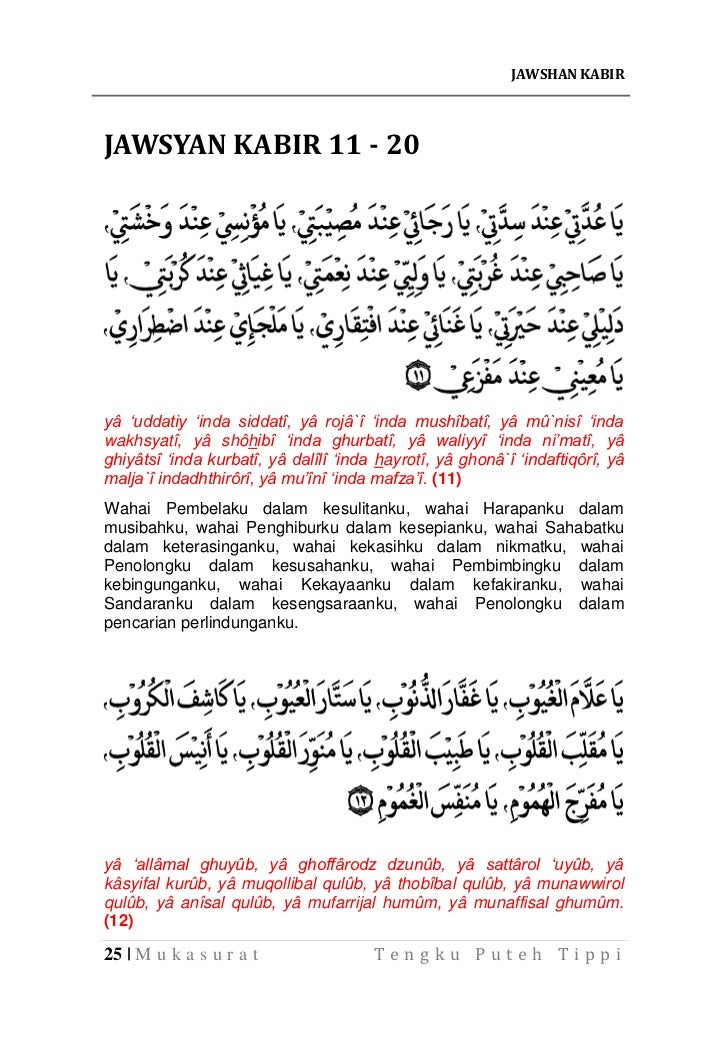 JAWSHAN KABIR
JAWSYAN KABIR 11 - 20
يَا عُدَّتِيْ عِنْدَ سِدَّتِيْ، يَا رَجَائِيْ عِنْدَ مُصِيْبَتِيْ، يَا مُؤْنِسِيْ عِنْدَ وَحْشَتِيْ،
يَا صَاحِبِيْ عِنْدَ غُرْبَتِيْ، يَا وَلِيِّيْ عِنْدَ نِعْمَتِيْ، يَا غِيَاثِيْ عِنْدَ كُرْبَتِيْ، يَا
دَلِيْلِيْ عِنْدَ حَيْرَتِيْ، يَا غَنَائِيْ عِنْدَ افْتِقَارِيْ، يَا مَلْجَإِيْ عِنْدَ اضْطِرَارِيْ،
يَا مُعِيْنِيْ عِنْدَ مَفْزَعِيْ ﴿١١﴾
yâ ‘uddatiy ‘inda siddatî, yâ rojâ`î ‘inda mushîbatî, yâ mû`nisî ‘inda
wakhsyatî, yâ shôhibî ‘inda ghurbatî, yâ waliyyî ‘inda ni’matî, yâ
ghiyâtsî ‘inda kurbatî, yâ dalîlî ‘inda hayrotî, yâ ghonâ`î ‘indaftiqôrî, yâ
malja`î indadhthirôrî, yâ mu’înî ‘inda mafza’î. (11)
Wahai Pembelaku dalam kesulitanku, wahai Harapanku dalam
musibahku, wahai Penghiburku dalam kesepianku, wahai Sahabatku
dalam keterasinganku, wahai kekasihku dalam nikmatku, wahai
Penolongku dalam kesusahanku, wahai Pembimbingku dalam
kebingunganku, wahai Kekayaanku dalam kefakiranku, wahai
Sandaranku dalam kesengsaraanku, wahai Penolongku dalam
pencarian perlindunganku.
يَا عَلَّامَ الْغُيُوْبِ، يَا غَفَّارَ الذُّنُوْبِ، يَا سَتَّارَ الْعُيُوْبِ، يَا كَاشِفَ الْكُرُوْبِ،
يَا مُقَلِّبَ الْقُلُوْبِ، يَا طَبِيْبَ الْقُلُوْبِ، يَا مُنَوِّرَ الْقُلُوْبِ، يَا أَنِيْسَ الْقُلُوْبِ،
يَا مُفَرِّجَ الْهُمُوْمِ، يَا مُنَفِّسَ الْغُمُوْمِ ﴿١٢﴾
yâ ‘allâmal ghuyûb, yâ ghoffârodz dzunûb, yâ sattârol ‘uyûb, yâ
kâsyifal kurûb, yâ muqollibal qulûb, yâ thobîbal qulûb, yâ munawwirol
qulûb, yâ anîsal qulûb, yâ mufarrijal humûm, yâ munaffisal ghumûm.
(12)
25 | Mukasurat Tengku Puteh Tippi